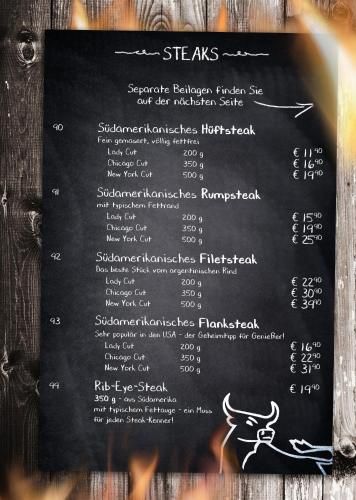 STEAKS
Separate Beilagen finden Sie
auf der nächsten Seite
90 Südamerikanisches Hüftsteak
Fein gemasert, völlig fettfrei
Lady Cut 200 g € 11⁹⁰
Chicago Cut 350 g € 16⁹⁰
New York Cut 500 g € 19⁹⁰
91 Südamerikanisches Rumpsteak
mit typischem Fettrand
Lady Cut 200 g € 15⁹⁰
Chicago Cut 350 g € 19⁹⁰
New York Cut 500 g € 25⁹⁰
92 Südamerikanisches Filetsteak
Das beste Stück vom argentinischen Rind
Lady Cut 200 g € 22⁹⁰
Chicago Cut 350 g € 30⁹⁰
New York Cut 500 g € 39⁹⁰
93 Südamerikanisches Flanksteak
Sehr populär in den USA - der Geheimtipp für Genießer!
Lady Cut 200 g € 16⁹⁰
Chicago Cut 350 g € 22⁹⁰
New York Cut 500 g € 31⁹⁰
94 Rib-Eye-Steak € 19⁹⁰
350 g - aus Südamerika
mit typischem Fettauge - ein Muss
für jeden Steak-Kenner!